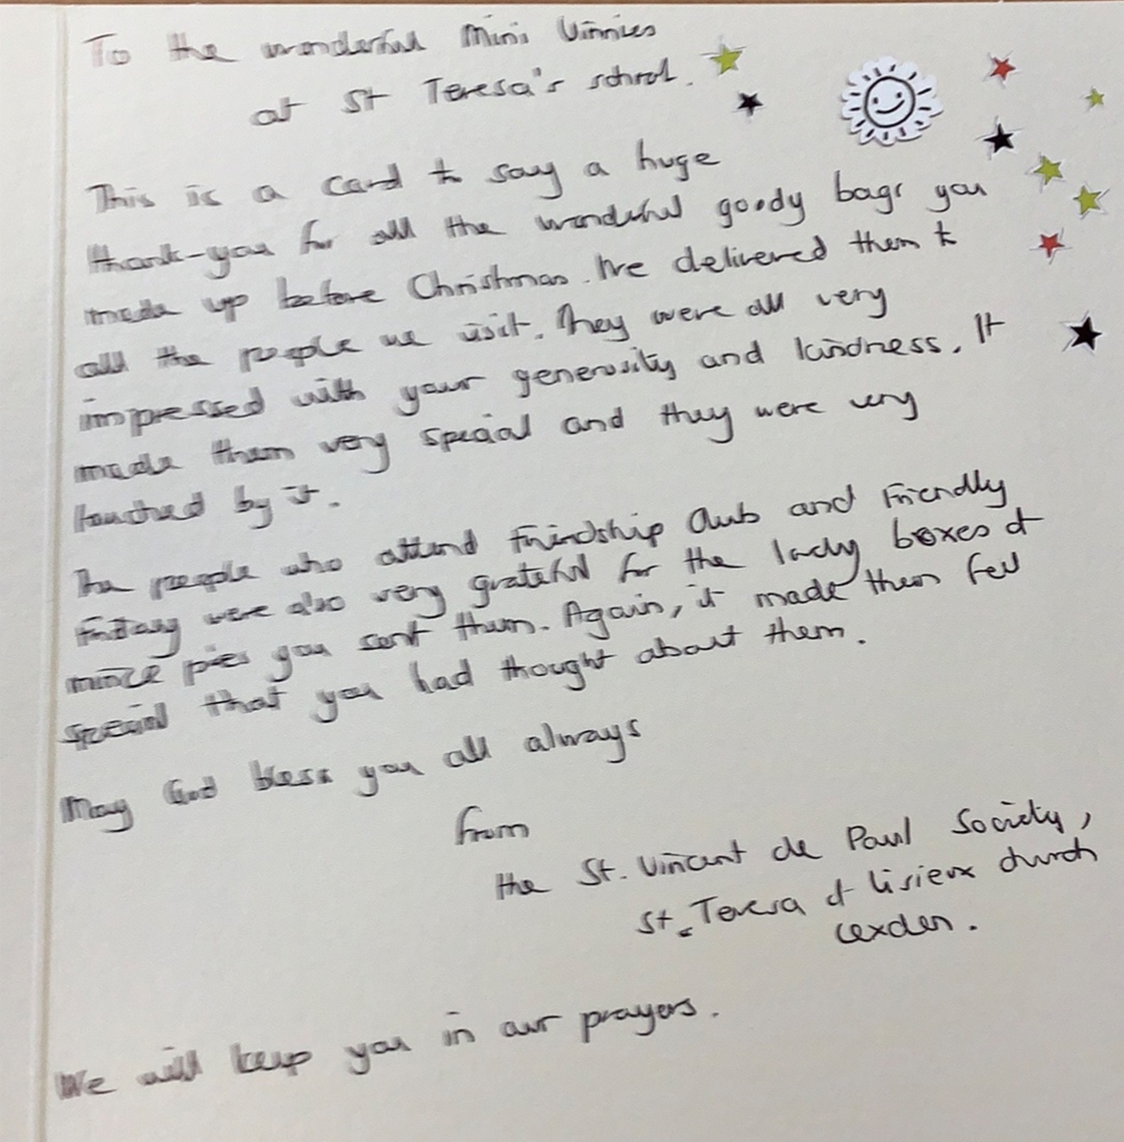 To the wonderful Mini Vinnies
at St Teresa's school.
This is a card to say a huge
thank-you for all the wonderful goody bags you
made up before Christmas. We delivered them to
all the people we visit. They were all very
impressed with your generosity and kindness. It
made them very special and they were very
touched by it.
The people who attend Friendship Club and Friendly
Friday were also very grateful for the lovely boxes of
mince pies you sent them. Again, it made them feel
special that you had thought about them.
May God bless you all always
from
the St. Vincent de Paul Society,
St. Teresa of Lisieux church
Lexden.
We will keep you in our prayers.